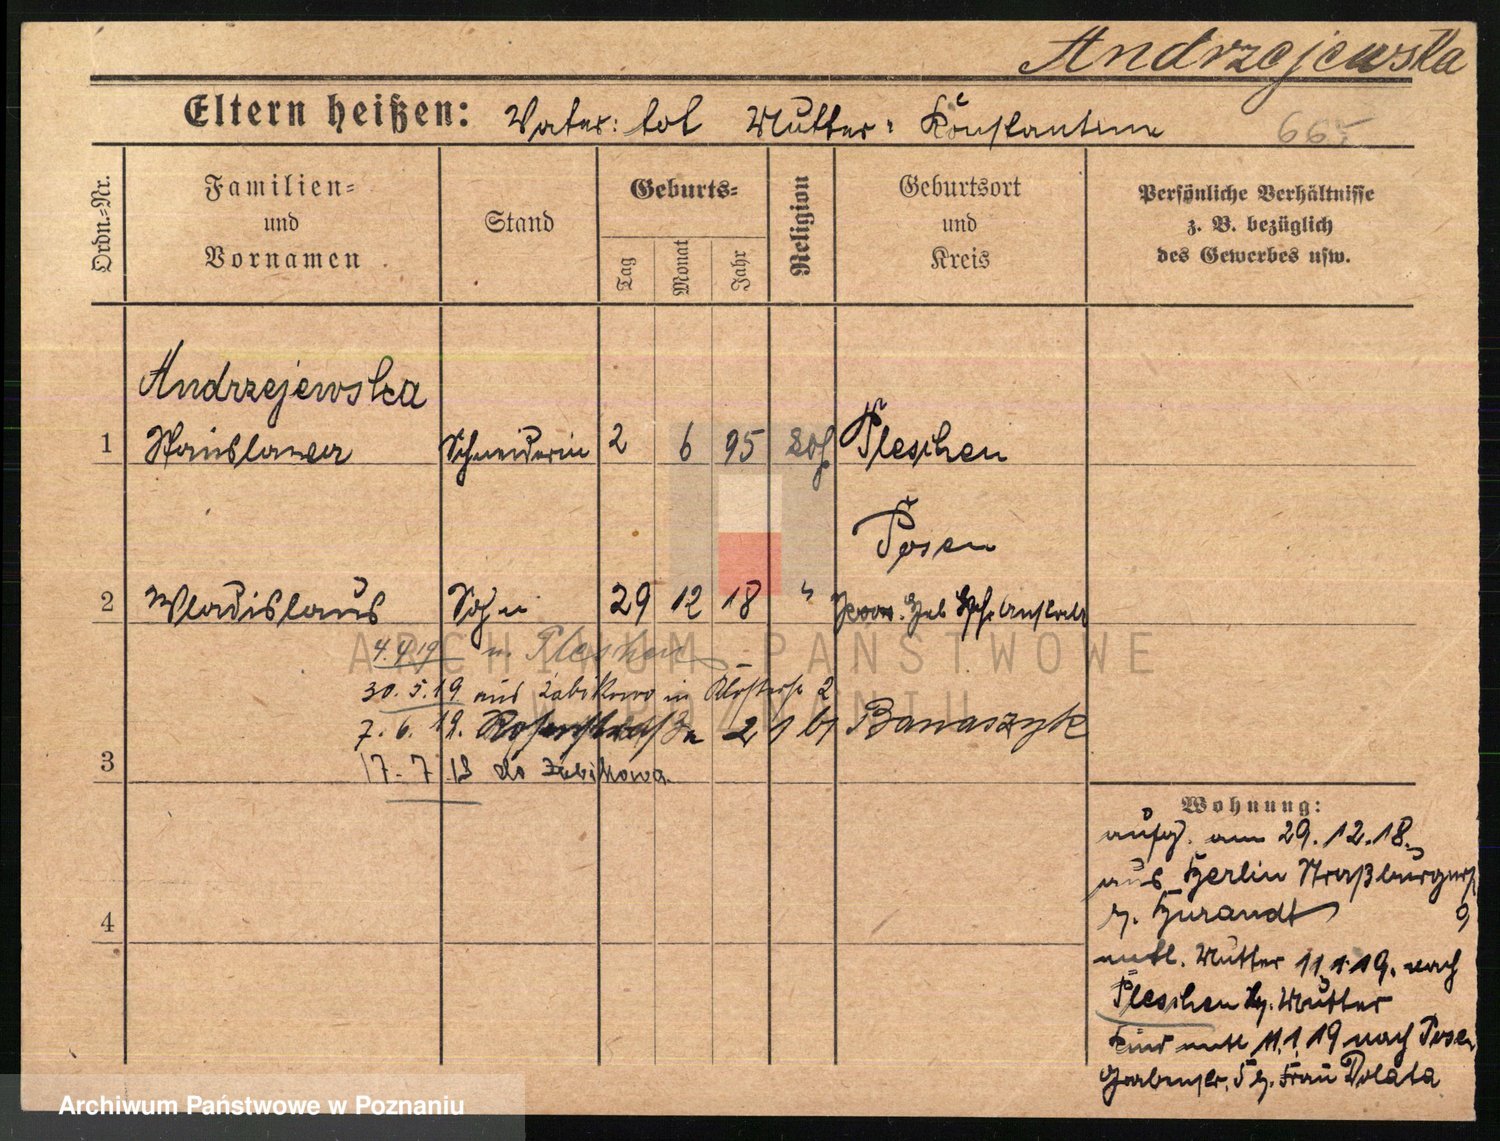 Andrzejewska
Eltern heißen: Vater: tot Mutter: Konstantine 665
Ordn.=Nr.
Familien=
und
Vornamen
Stand
Geburts=
Tag
Monat
Jahr
Religion
Geburtsort
und
Kreis
Persönliche Verhältnisse
z. B. bezüglich
des Gewerbes usw.
Andrzejewska
1 Stanislawa Schneiderin 2 6 95 kath Pleschen
Posen
2 Wladislaus Sohn 29 12 18 " Prov. Heb
4.4.19 n. Pleschen
30.5.19 aus Zabikowo in 2
7.6.19. 21 bei Banaszyk
3 17-7 19 do Zabikowa
4
Wohnung:
am 29.12.18.
aus Berlin Straßburgerst
9
entl. Mutter 11.1.19. nach
Pleschen bei Mutter
Kind entl 11.1.19 nach Posen
Grabenstr. 5 bei Frau Dolata
ARCHIWUM PAŃSTWOWE
W POZNANIU
Archiwum Państwowe w Poznaniu